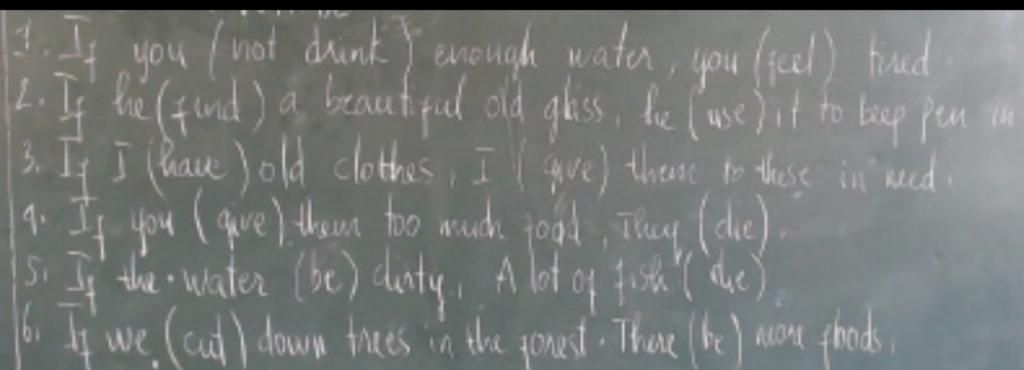 1. If you (not drink) enough water, you (feel) tired.
2. If he (find) a beautiful old glass, he (use) it to keep pen in
3. If I (have) old clothes, I (give) them to these in need.
4. If you (give) them too much food, They (die).
5. If the water (be) dirty, A lot of fish (die)
6. If we (cut) down trees in the forest. There (be) more floods.